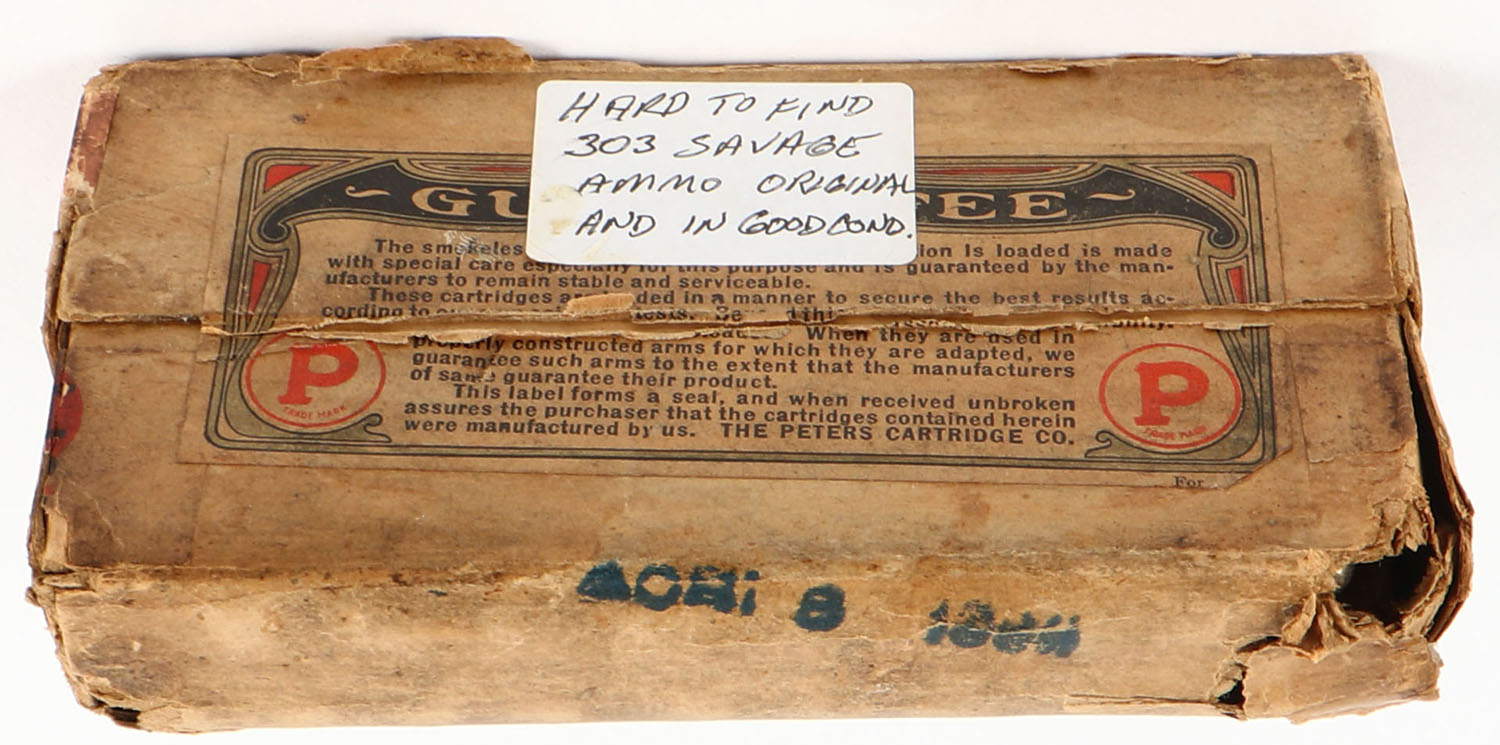 HARD TO FIND
303 SAVAGE
AMMO ORIGINAL
AND IN GOOD COND.
GU FEE
The smokeles ion is loaded is made
with special care especially for this purpose and is guaranteed by the man-
ufacturers to remain stable and serviceable.
These cartridges ded in a manner to secure the best results ac-
cording to tests.
When they are used in
properly constructed arms for which they are adapted, we
guarantee such arms to the extent that the manufacturers
of same guarantee their product.
This label forms a seal, and when received unbroken
assures the purchaser that the cartridges contained herein
were manufactured by us. THE PETERS CARTRIDGE CO.
P
TRADE MARK
P
TRADE MARK
For